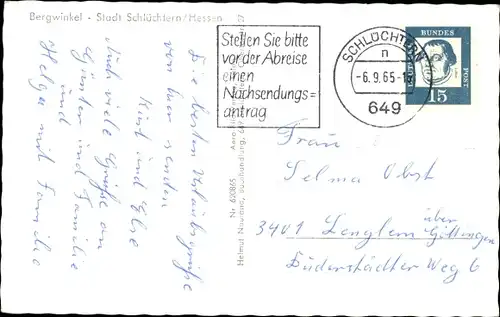 Bergwinkel - Stadt Schlüchtern/Hessen
Die besten Urlaubsgrüße
von hier senden
Kurt und Else
Auch viele Grüße an
Günter und Familie
und
Helga mit Familie
Nr. 620865
Helmut Neuland, Buchhandlung,
Stellen Sie bitte
vor der Abreise
einen
Nachsendungs=
antrag
SCHLÜCHTERN
n
-6.9.65-
649
DEUTSCHE
BUNDES
POST
15
Frau
Selma Obst
3401 Lenglern über
Göttingen
Duderstädter Weg 6